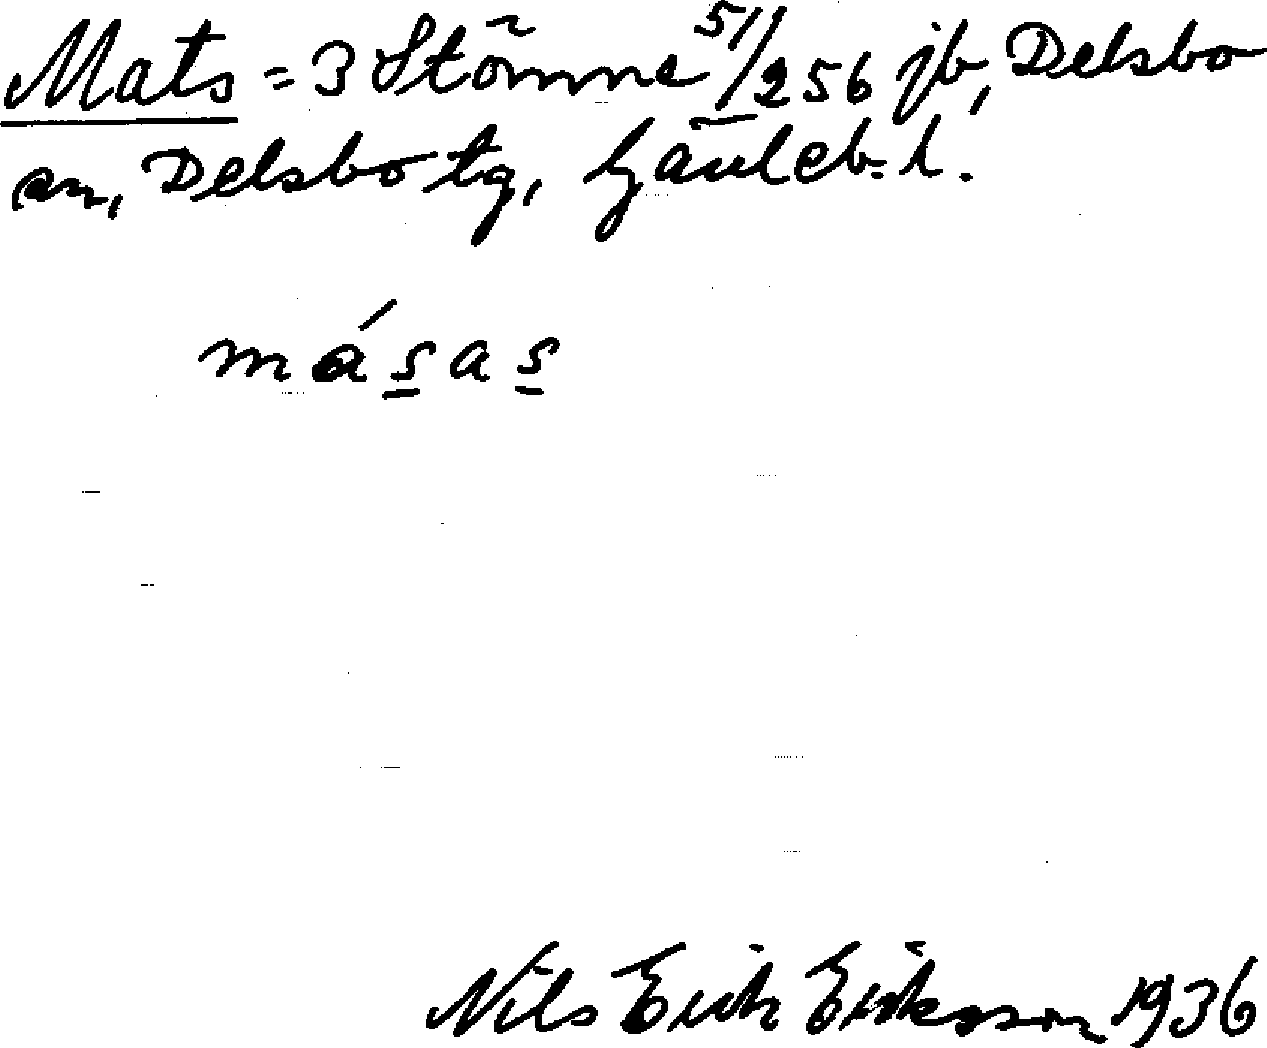 Mats = 3 Stömne 51/256 jb, Delsbo
sn, Delsbo tg, Gävleb. l.
másas
Nils Erik Eriksson 1936